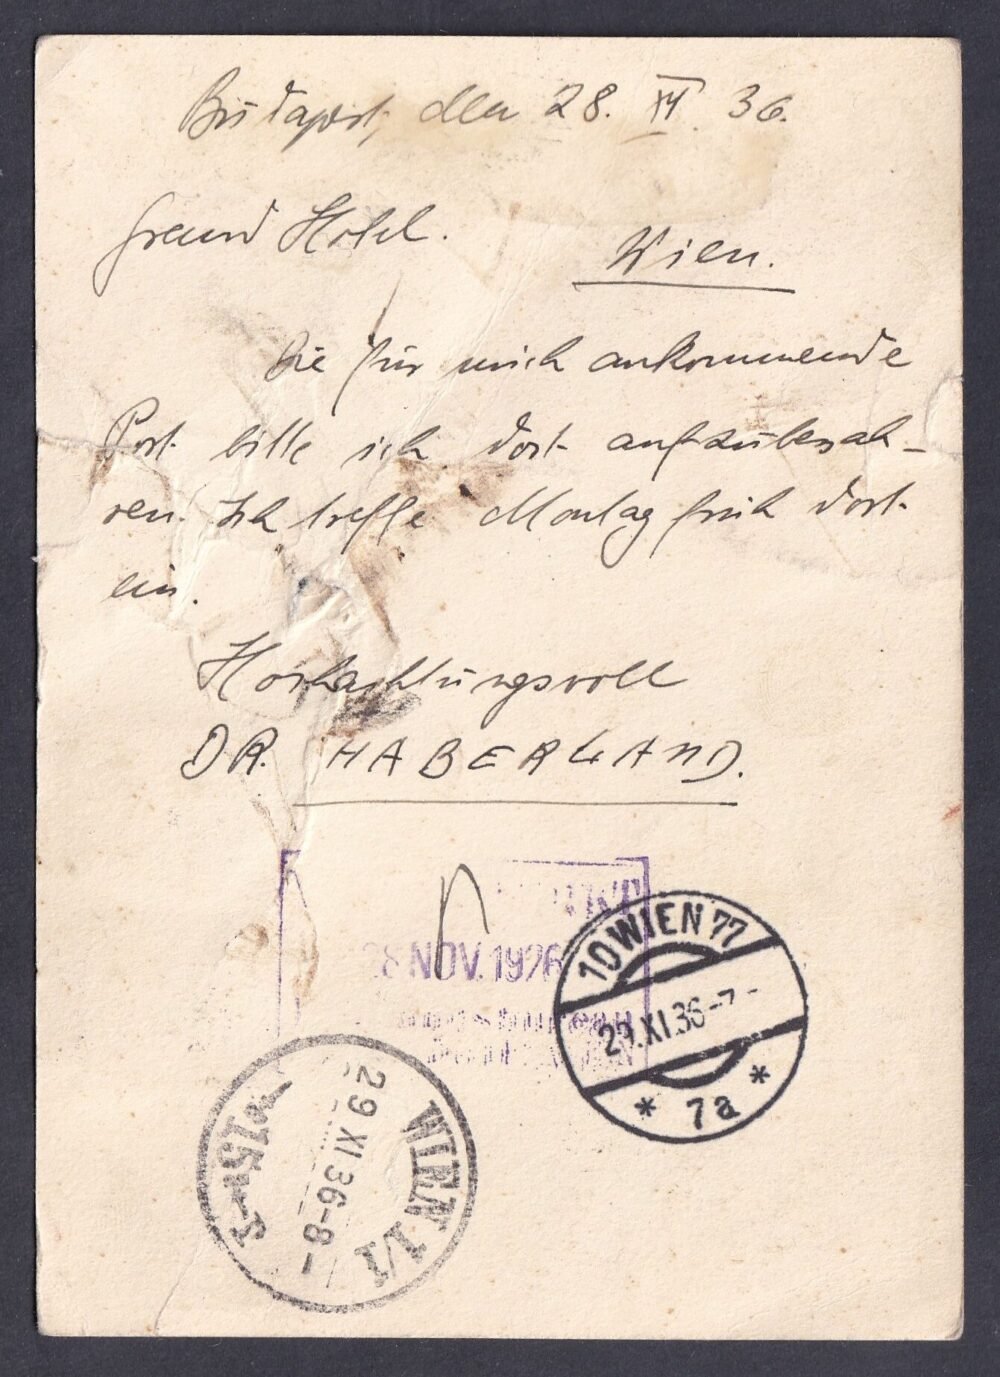 Budapest, den 28. XI. 36.
Grand Hotel.
Wien.
Die für mich ankommende
Post bitte ich dort aufzubewah-
ren. Ich treffe Montag früh dort
ein.
Hochachtungsvoll
DR. HABERLAND.
28 NOV. 1936
10 WIEN 77
29.XI.36-7-
* 7a *
WIEN 1/1
29 XI 36-8-